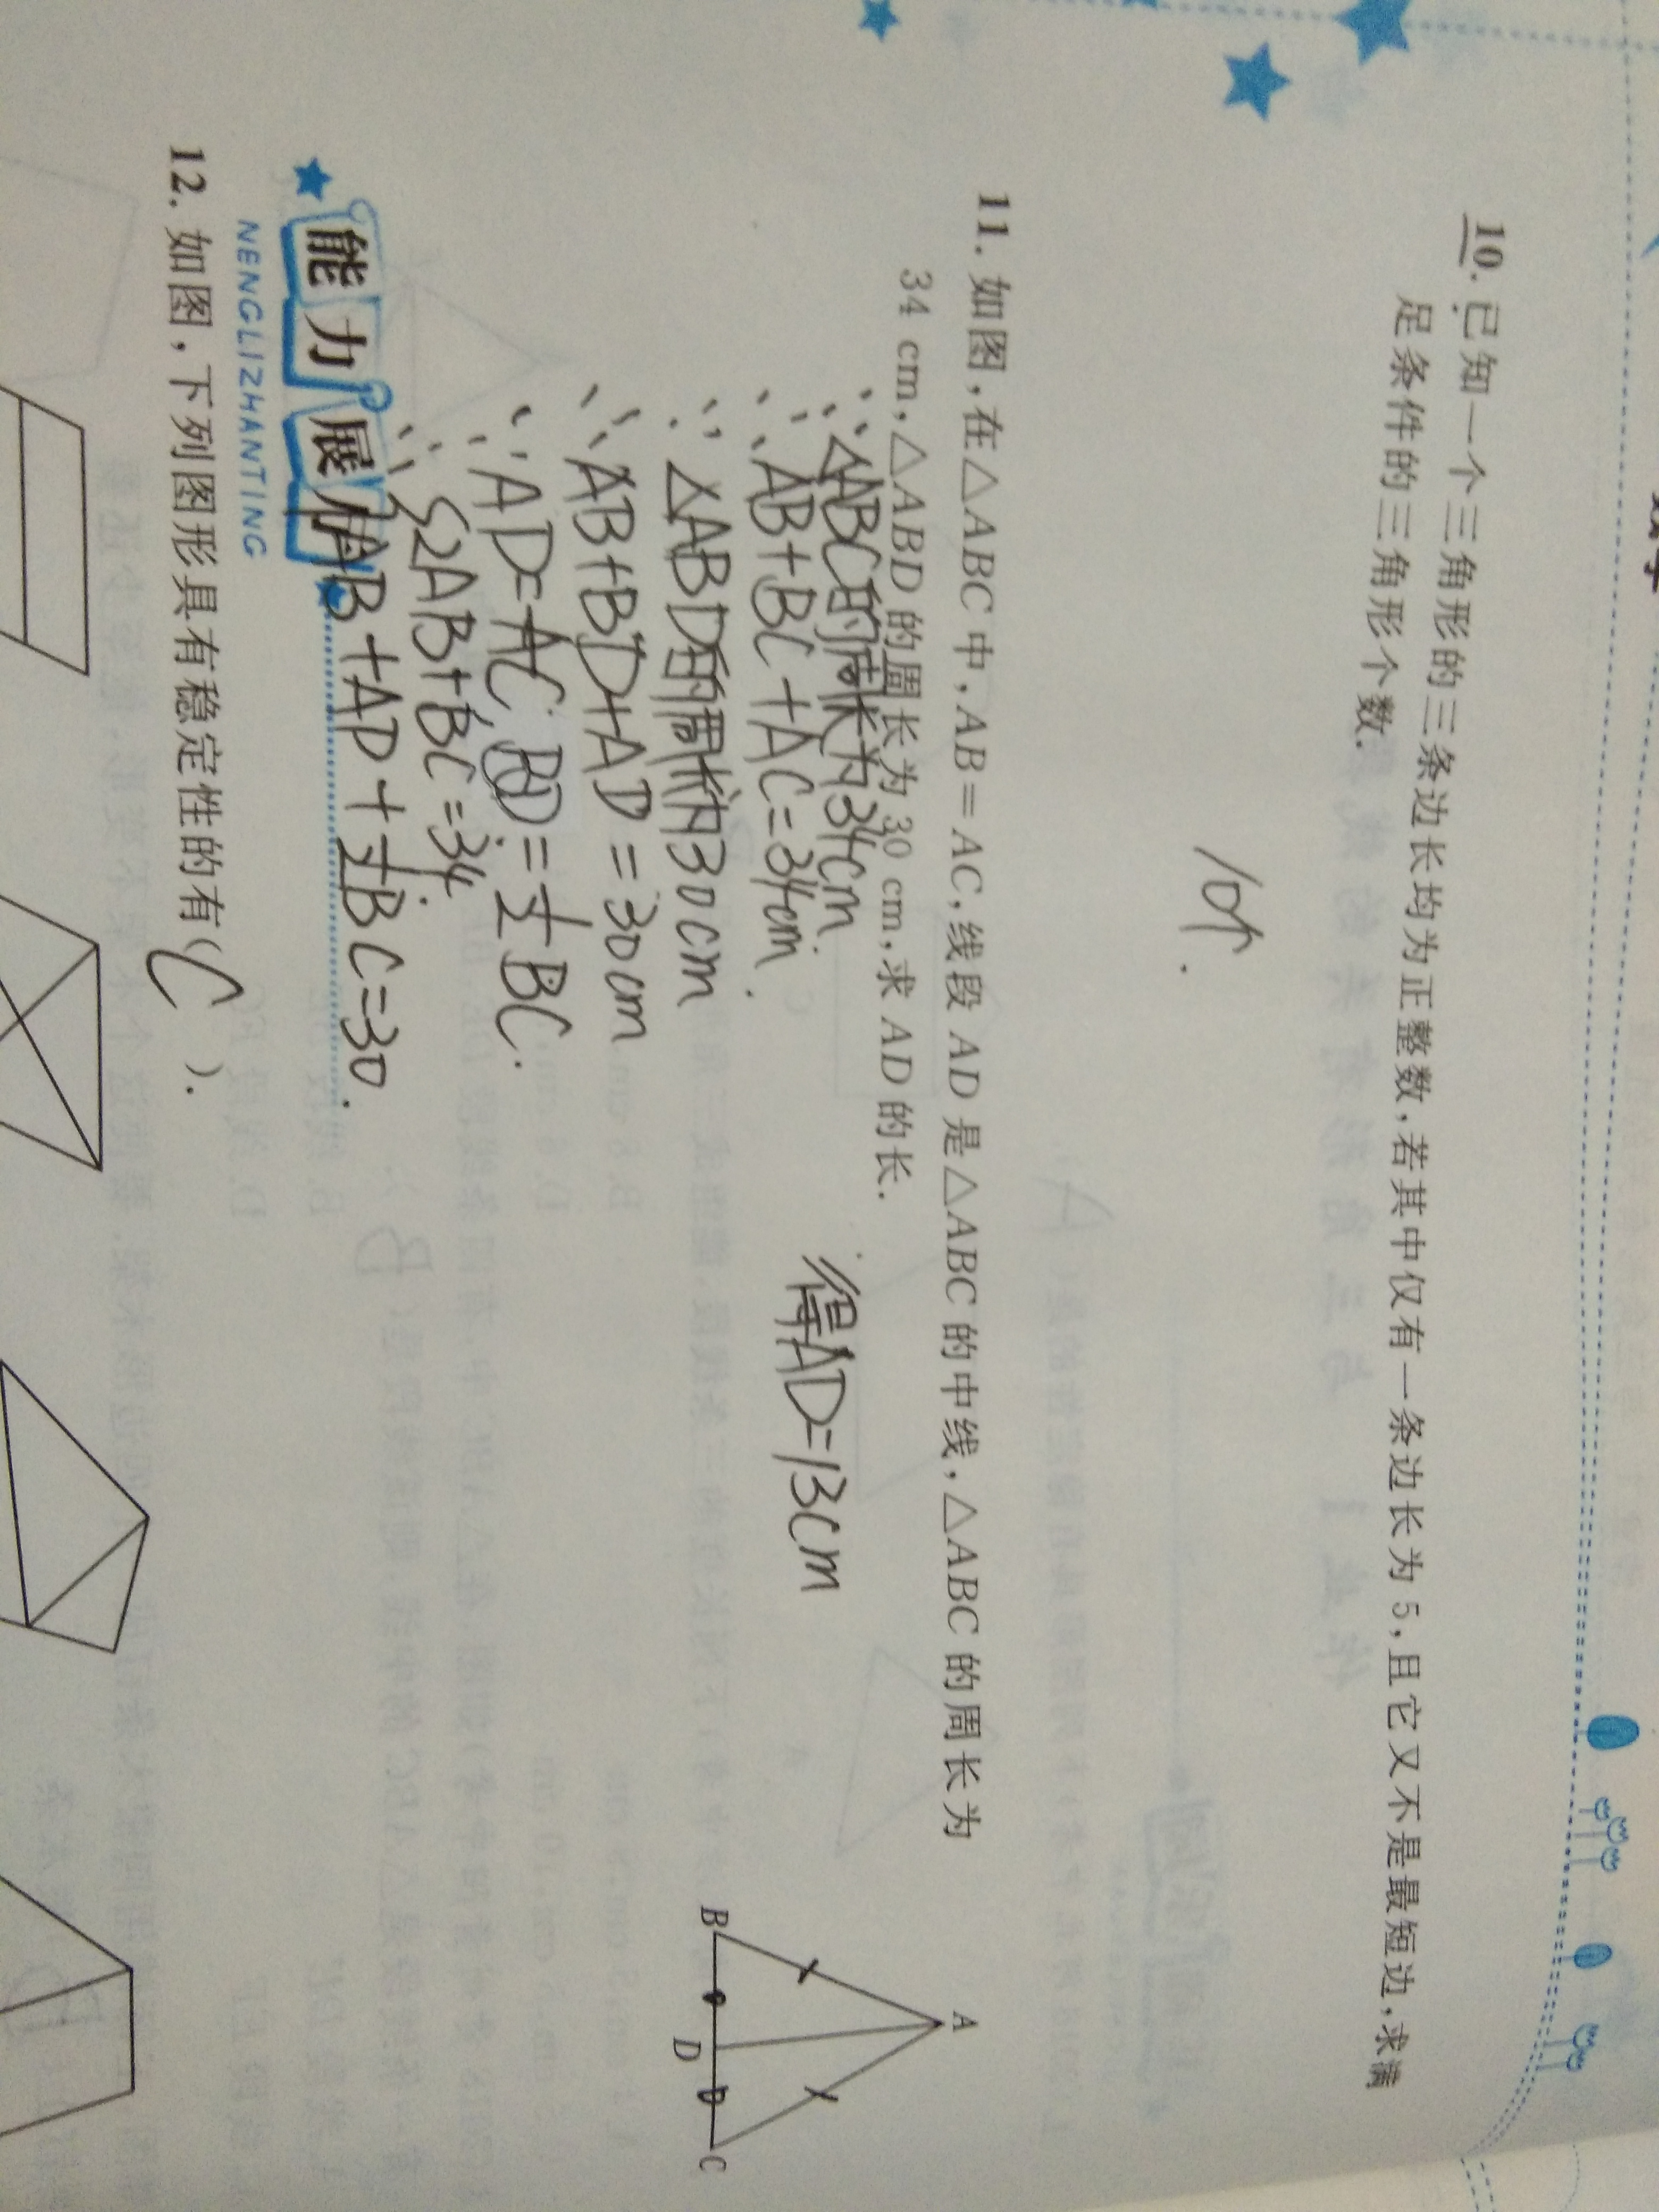 10. 已知一个三角形的三条边长均为正整数，若其中仅有一条边长为 5，且它又不是最短边，求满
足条件的三角形个数.
10个.
11. 如图，在△ABC 中，AB=AC，线段 AD 是△ABC 的中线，△ABC 的周长为
34 cm，△ABD 的周长为 30 cm，求 AD 的长.
∵△ABC的周长为34cm
∴AB+BC+AC=34cm.
∵△ABD的周长为30cm
∴AB+BD+AD=30cm
∵AB=AC, BD=½BC.
∴{2AB+BC=34.
AB+AD+½BC=30.
得AD=13cm
A
B
D
C
能力展
NENGLIZHANTING
12. 如图，下列图形具有稳定性的有( C ).